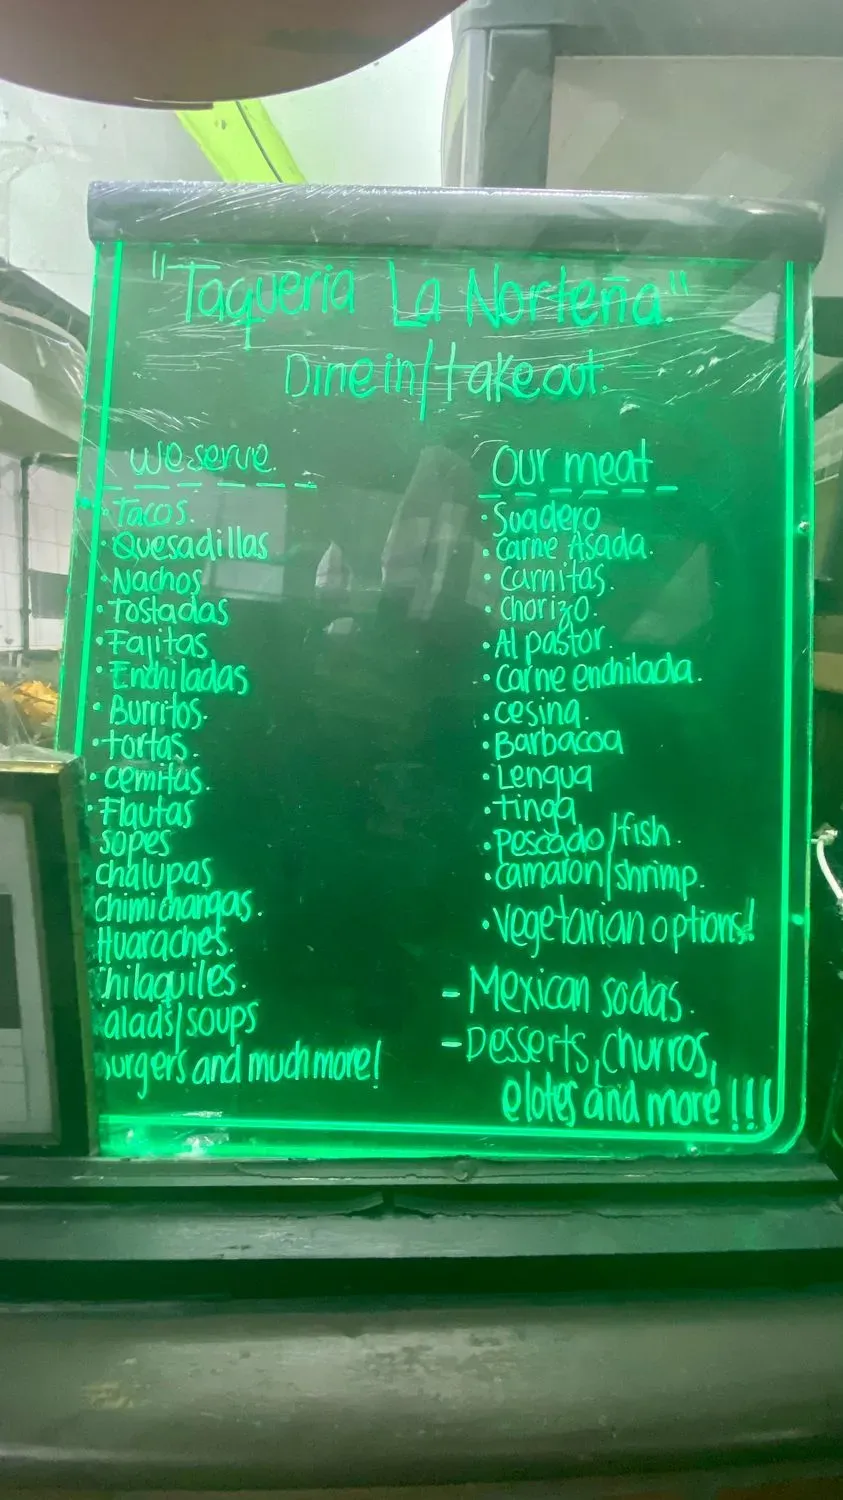 "Taqueria La Norteña."
Dine in/take out.
we serve.
• Tacos.
• Quesadillas
• Nachos
• Tostadas
• Fajitas
• Enchiladas
• Burritos.
• tortas.
• cemitas.
• Flautas
sopes
chalupas
chimichangas.
Huaraches.
hilaquiles.
alads/soups
urgers and much more!
Our meat
• Suadero
• Carne Asada.
• Carnitas.
• Chorizo.
• Al pastor.
• Carne enchilada.
• cesina.
• Barbacoa
• Lengua
• tinga
• pescado/fish.
• camaron/shrimp.
• Vegetarian options!
- Mexican sodas.
- Desserts, churros,
elotes and more!!!